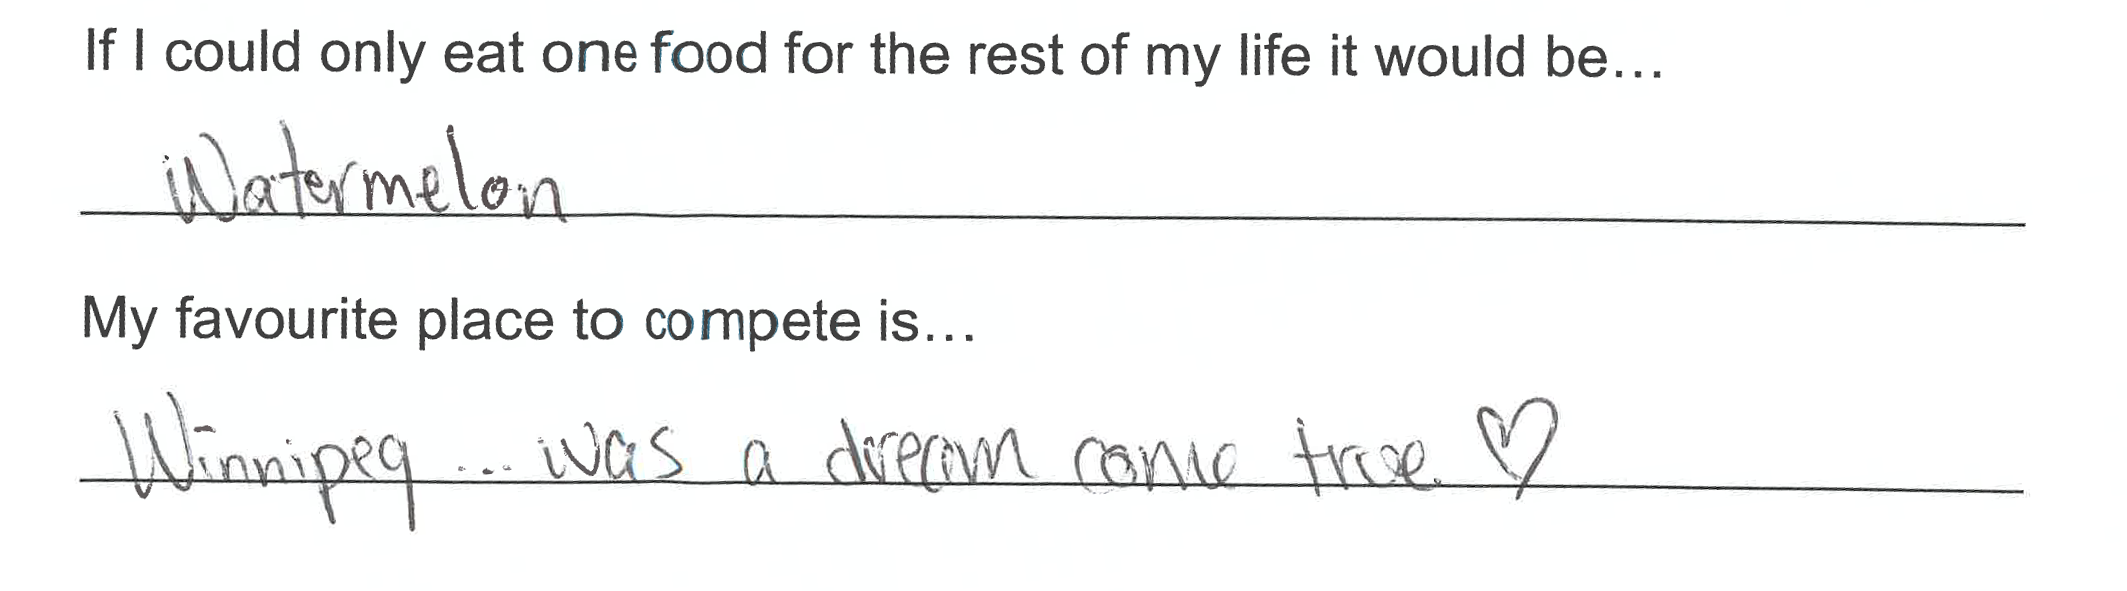 If I could only eat one food for the rest of my life it would be...
Watermelon
My favourite place to compete is...
Winnipeg ... was a dream come true. ♡